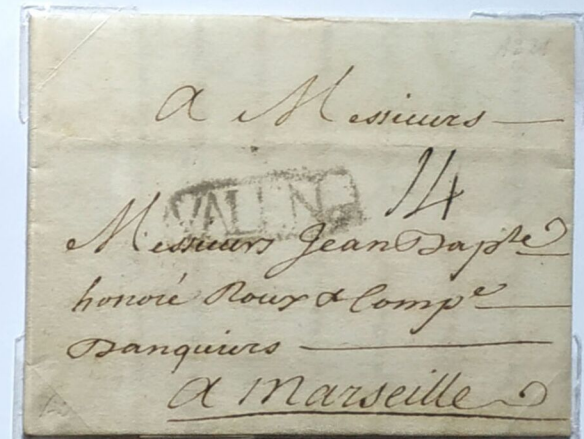 A Messieurs
VALEN
14
Messieurs Jean Bapte
honoré Roux & Compe
Banquiers
A Marseille